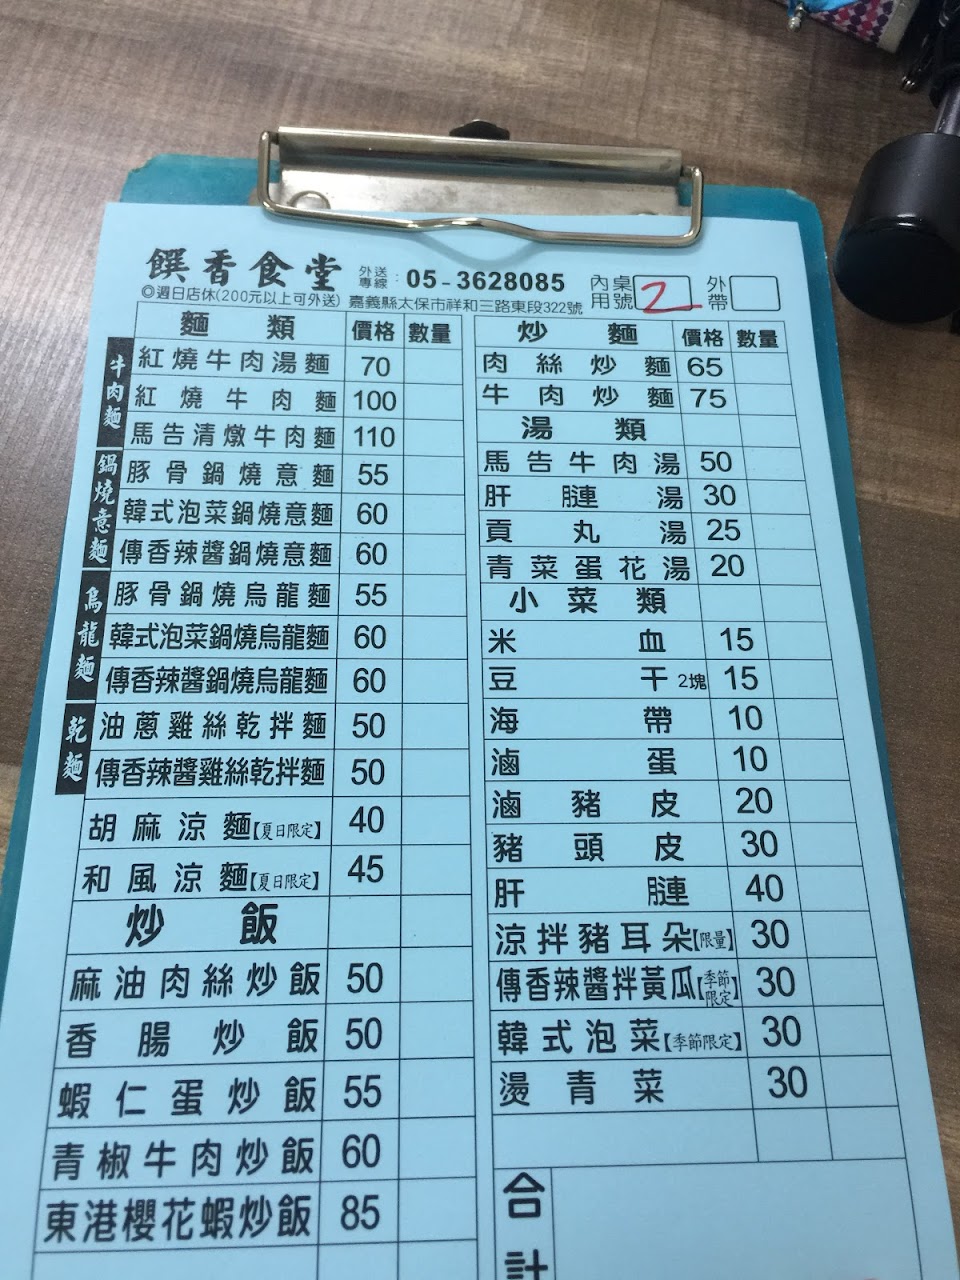 饌香食堂 外送專線：05-3628085 內用 桌號 2 外帶
◎週日店休(200元以上可外送) 嘉義縣太保市祥和三路東段322號
麵類 價格 數量
牛肉麵
紅燒牛肉湯麵 70
紅燒牛肉麵 100
馬告清燉牛肉麵 110
鍋燒意麵
豚骨鍋燒意麵 55
韓式泡菜鍋燒意麵 60
傳香辣醬鍋燒意麵 60
烏龍麵
豚骨鍋燒烏龍麵 55
韓式泡菜鍋燒烏龍麵 60
傳香辣醬鍋燒烏龍麵 60
乾麵
油蔥雞絲乾拌麵 50
傳香辣醬雞絲乾拌麵 50
胡麻涼麵【夏日限定】 40
和風涼麵【夏日限定】 45
炒飯
麻油肉絲炒飯 50
香腸炒飯 50
蝦仁蛋炒飯 55
青椒牛肉炒飯 60
東港櫻花蝦炒飯 85
炒麵 價格 數量
肉絲炒麵 65
牛肉炒麵 75
湯類
馬告牛肉湯 50
肝膁湯 30
貢丸湯 25
青菜蛋花湯 20
小菜類
米血 15
豆干 2塊 15
海帶 10
滷蛋 10
滷豬皮 20
豬頭皮 30
肝膁 40
涼拌豬耳朵【限量】 30
傳香辣醬拌黃瓜【季節限定】 30
韓式泡菜【季節限定】 30
燙青菜 30
合計